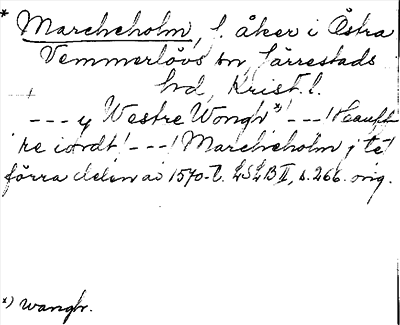 * Marcheholm, f. åker i Östra
Vemmerlövs sn, Järrestads
hd, Krist. l.
– – – y Westre Wongh *) – – – ! Hauff
re iordt ! – – – ! Marcheholm j té
förra delen av 1570-t. LSLB II, s. 266. orig.
*) wangh.